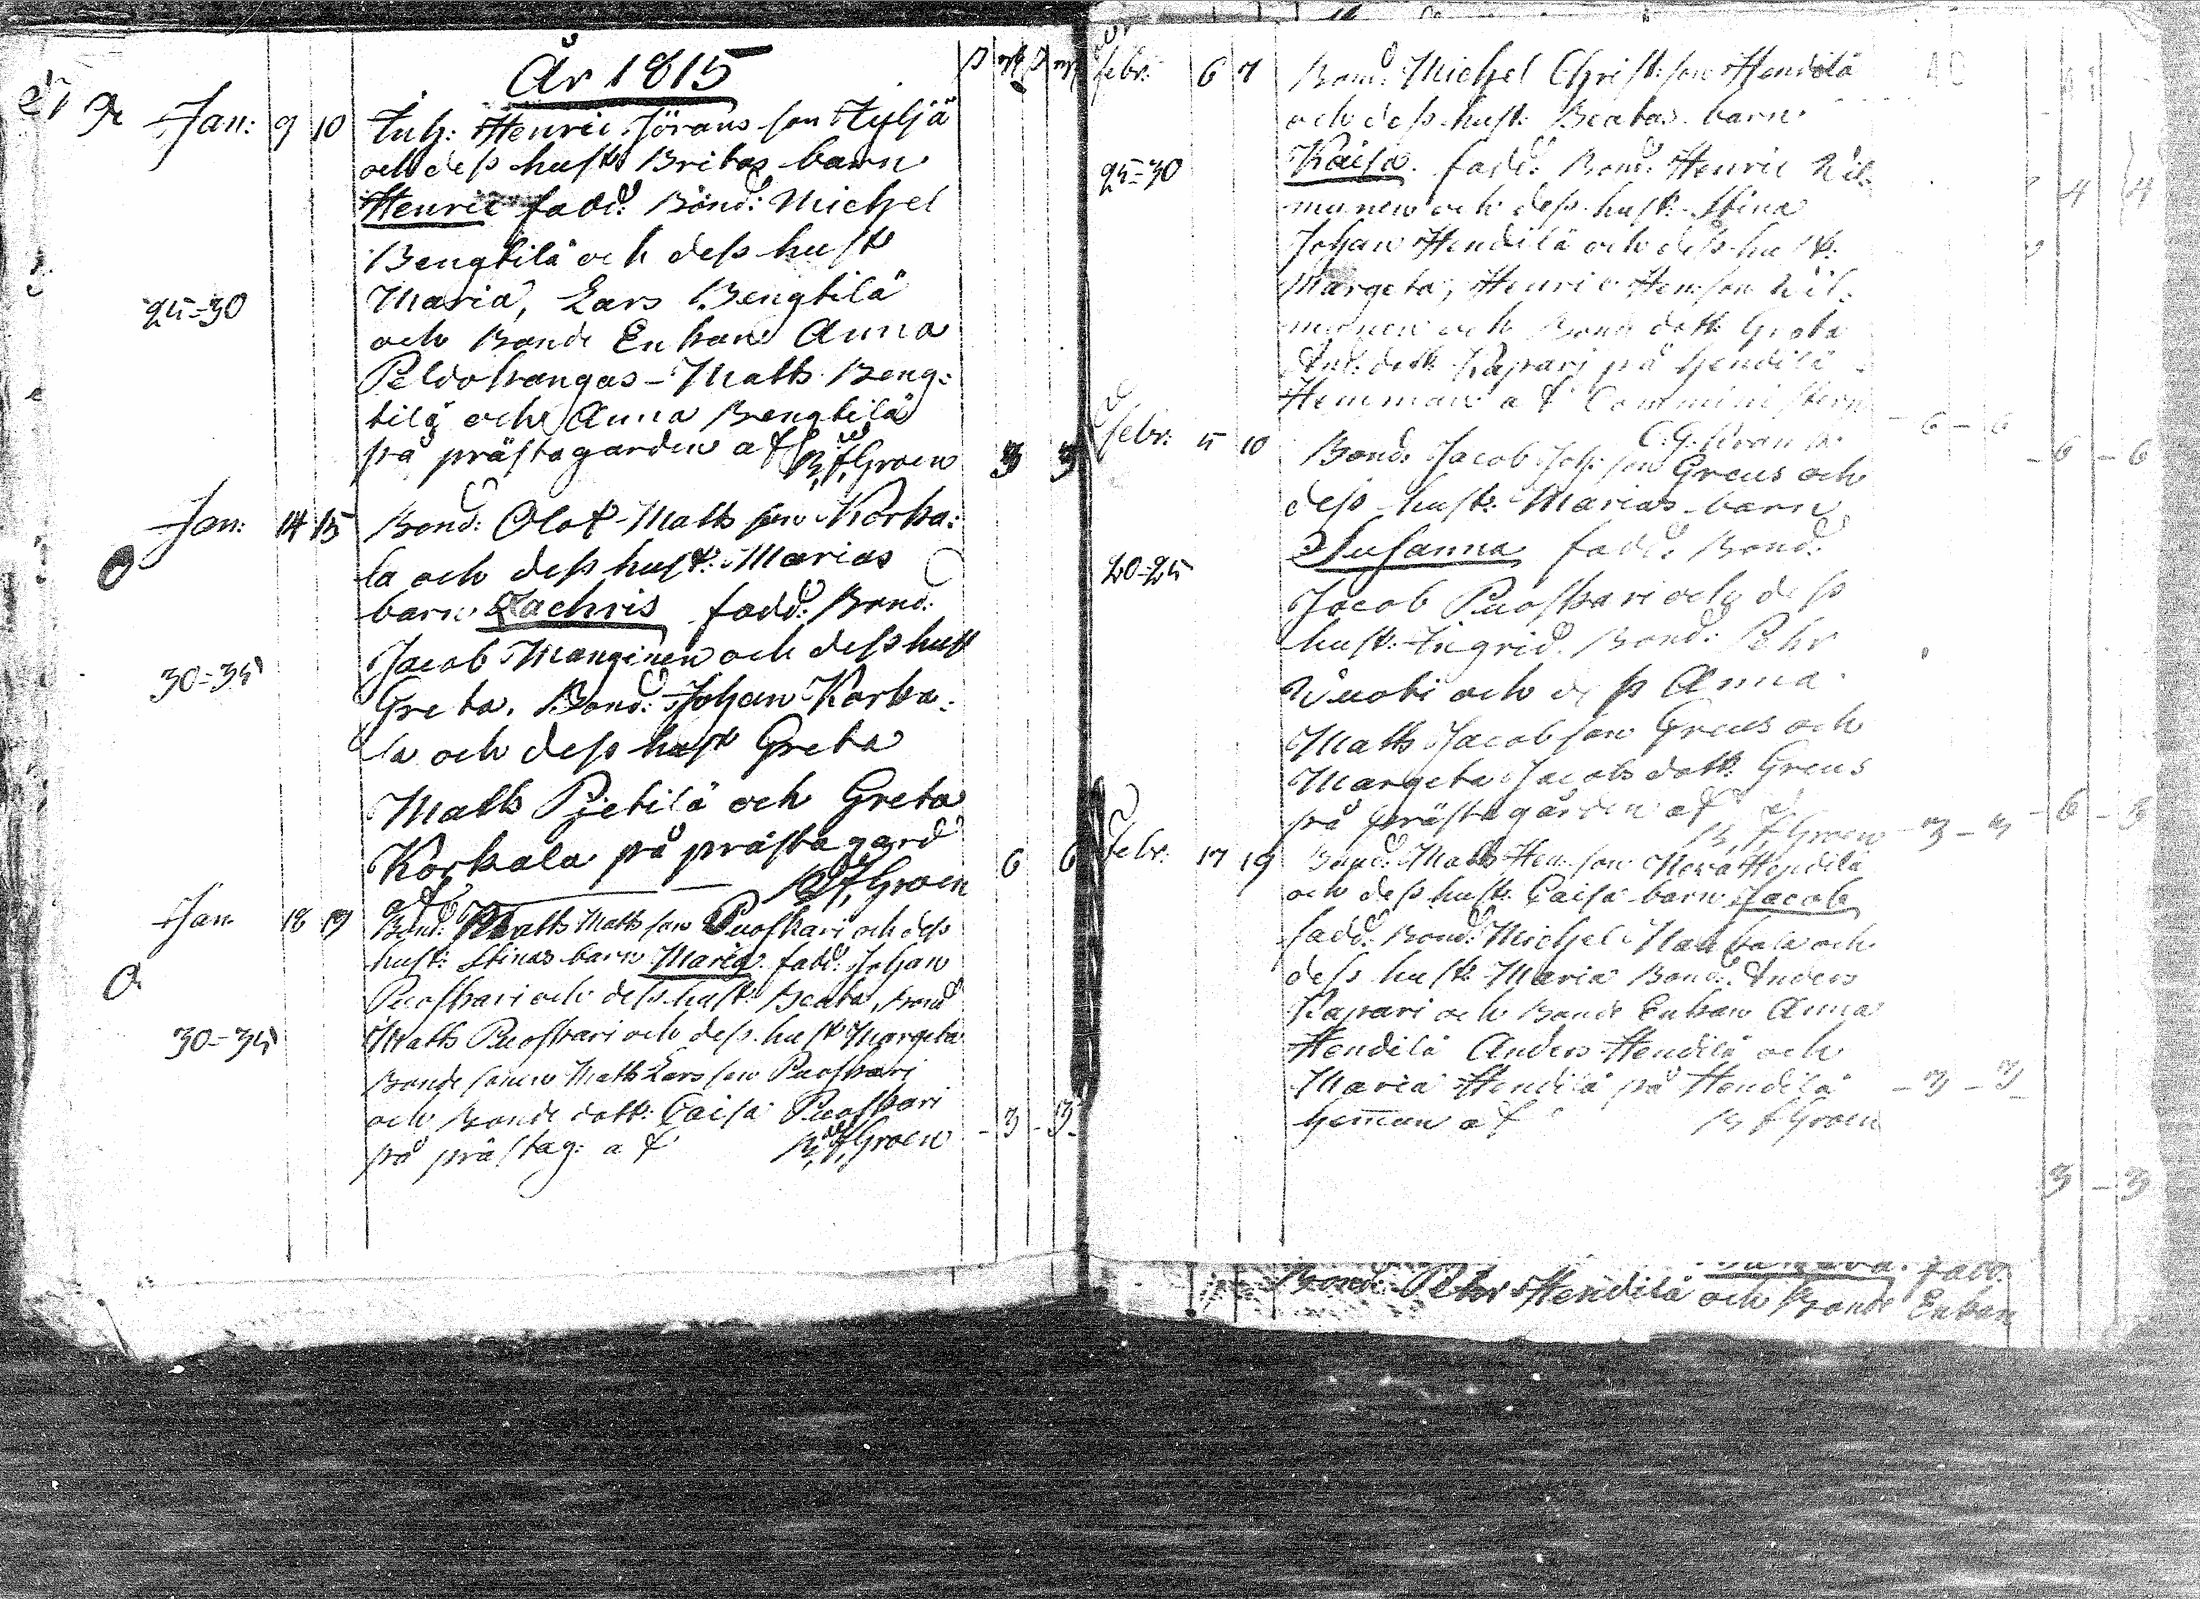 År 1815
Jan: 9 10 Inh: Henric Jörans son Hyljä
och dess hust: Britas barn
Henric fadd: Bond: Michel
Bengtilä och dess hust
25=30 Maria, Lars Bengtilä
och Bonde Enkan Anna
Peldokangas - Matts Beng:
tilä och Anna Bengtilä
på prästagarden af B. f. Groen 3 3
Jan: 14 15 Bond: Olof Matts son Korka:
la och dess hust: Marias
barn Zachris fadd: Bond:
30=35 Jacob Manginen och dess hust
Greta. Bond: Johan Korka:
la och dess hust Greta
Matts Pietilä och Greta
Korkala på prästagard
af B. f. Groen 6 6
Jan 18 19 Bond: Matts Matts son Puoskari och dess
hust: Stinas barn Maria. fadd: Johan
Puoskari och dess hust: Beata, Bond
30=35 Matts Puoskari och dess hust Margeta
Bonde sonen Matts Lars son Puoskari
och Bonde dott: Caisa Puoskari
på prästag: af B. f. Groen - 3 - 3
febr: 6 7 Bond: Michel Christ: son Hendilä
och dess hust: Beatas barn
25=30 Kaisa. fadd: Bond: Henric
och dess hust: Stina
Johan Hendilä och dess hust:
Margeta, Henric Hen: son
och Bond dott: Greta
dott: Kapari på Hendilä
Hemman af Comministern
C. G. - 6 - 6
febr: 5 10 Bond: Jacob Joh: son Greus och
dess hust: Marias barn
20=25 Susanna fadd: Bond:
Jacob Puoskari och dess
hust: Ingrid. Bond: Pehr
Wuoti och dess Anna
Matts Jacob son Greus och
Margeta Jacobs dott: Greus
på prästagården af B. f. Groen - 3 - 3
Febr: 17 19 Bond: Matts Hen: son Hendilä
och dess hust: Caisa barn Jacob
fadd: Bond: Michel och
dess hust: Maria Bond: Anders
Kapari och Bonde Enkan Anna
Hendilä Anders Hendilä och
Maria Hendilä på Hendilä - 3 - 3
heman af B f Groen
Bond: Pehr Hendilä och Bonde Enkan